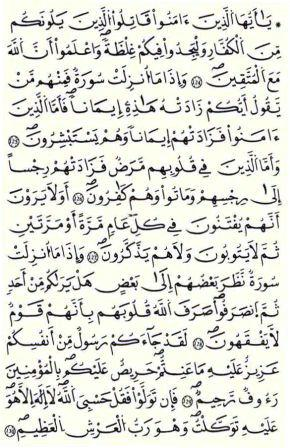 * يَـٰٓأَيُّهَا ٱلَّذِينَ ءَامَنُوا۟ قَـٰتِلُوا۟ ٱلَّذِينَ يَلُونَكُم
مِّنَ ٱلْكُفَّارِ وَلْيَجِدُوا۟ فِيكُمْ غِلْظَةً ۚ وَٱعْلَمُوٓا۟ أَنَّ ٱللَّهَ
مَعَ ٱلْمُتَّقِينَ ١٢٤ وَإِذَا مَآ أُنزِلَتْ سُورَةٌ فَمِنْهُم مَّن
يَقُولُ أَيُّكُمْ زَادَتْهُ هَـٰذِهِۦٓ إِيمَـٰنًا ۚ فَأَمَّا ٱلَّذِينَ
ءَامَنُوا۟ فَزَادَتْهُمْ إِيمَـٰنًا وَهُمْ يَسْتَبْشِرُونَ ١٢٥
وَأَمَّا ٱلَّذِينَ فِى قُلُوبِهِم مَّرَضٌ فَزَادَتْهُمْ رِجْسًا
إِلَىٰ رِجْسِهِمْ وَمَاتُوا۟ وَهُمْ كَـٰفِرُونَ ١٢٦ أَوَلَا يَرَوْنَ
أَنَّهُمْ يُفْتَنُونَ فِى كُلِّ عَامٍ مَّرَّةً أَوْ مَرَّتَيْنِ
ثُمَّ لَا يَتُوبُونَ وَلَا هُمْ يَذَّكَّرُونَ ١٢٧ وَإِذَا مَآ أُنزِلَتْ
سُورَةٌ نَّظَرَ بَعْضُهُمْ إِلَىٰ بَعْضٍ هَلْ يَرَىٰكُم مِّنْ أَحَدٍ
ثُمَّ ٱنصَرَفُوا۟ ۚ صَرَفَ ٱللَّهُ قُلُوبَهُم بِأَنَّهُمْ قَوْمٌ
لَّا يَفْقَهُونَ ١٢٨ لَقَدْ جَآءَكُمْ رَسُولٌ مِّنْ أَنفُسِكُمْ
عَزِيزٌ عَلَيْهِ مَا عَنِتُّمْ حَرِيصٌ عَلَيْكُم بِٱلْمُؤْمِنِينَ
رَءُوفٌ رَّحِيمٌ ١٢٩ فَإِن تَوَلَّوْا۟ فَقُلْ حَسْبِىَ ٱللَّهُ لَآ إِلَـٰهَ إِلَّا هُوَ ۖ
عَلَيْهِ تَوَكَّلْتُ ۖ وَهُوَ رَبُّ ٱلْعَرْشِ ٱلْعَظِيمِ ١٣٠